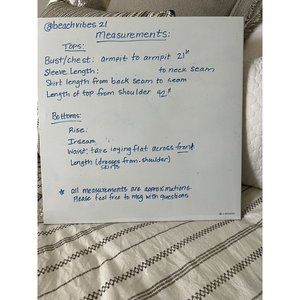 @beachvibes 21
Measurements:
Tops:
Bust/chest: armpit to armpit 21"
Sleeve Length: to neck seam
Shirt length from back seam to seam
Length of top from shoulder 42"
Bottoms:
Rise:
Inseam
Waist: take laying flat across front
Length (dresses from shoulder)
skirts
* all measurements are approximations
Please feel free to msg with questions